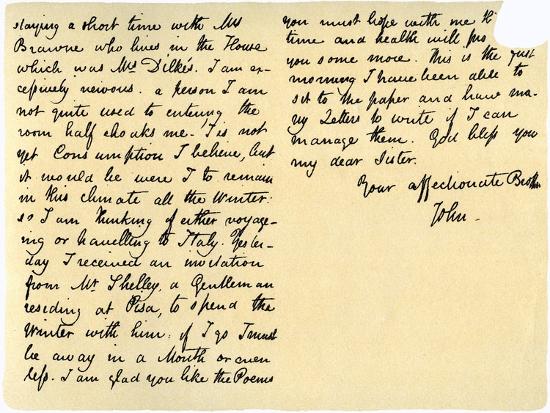 staying a short time with Mrs
Brawne who lives in the House
which was Mrs Dilke's. I am ex-
cessively nervous. a person I am
not quite used to entering the
room half choaks me. 'Tis not
yet Consumption I believe, but
it would be were I to remain
in this climate all the Winter:
so I am thinking of either voyage-
ing or travelling to Italy. Yester-
day I received an invitation
from Mr Shelley, a Gentleman
residing at Pisa, to spend the
Winter with him: if I go I must
be away in a Month or even
less. I am glad you like the Poems
you must hope with me
time and health will
you some more. This is the first
morning I have been able to
sit to the paper and have ma-
ny Letters to write if I can
manage them. God bless you
my dear Sister.
Your affectionate Brother
John -